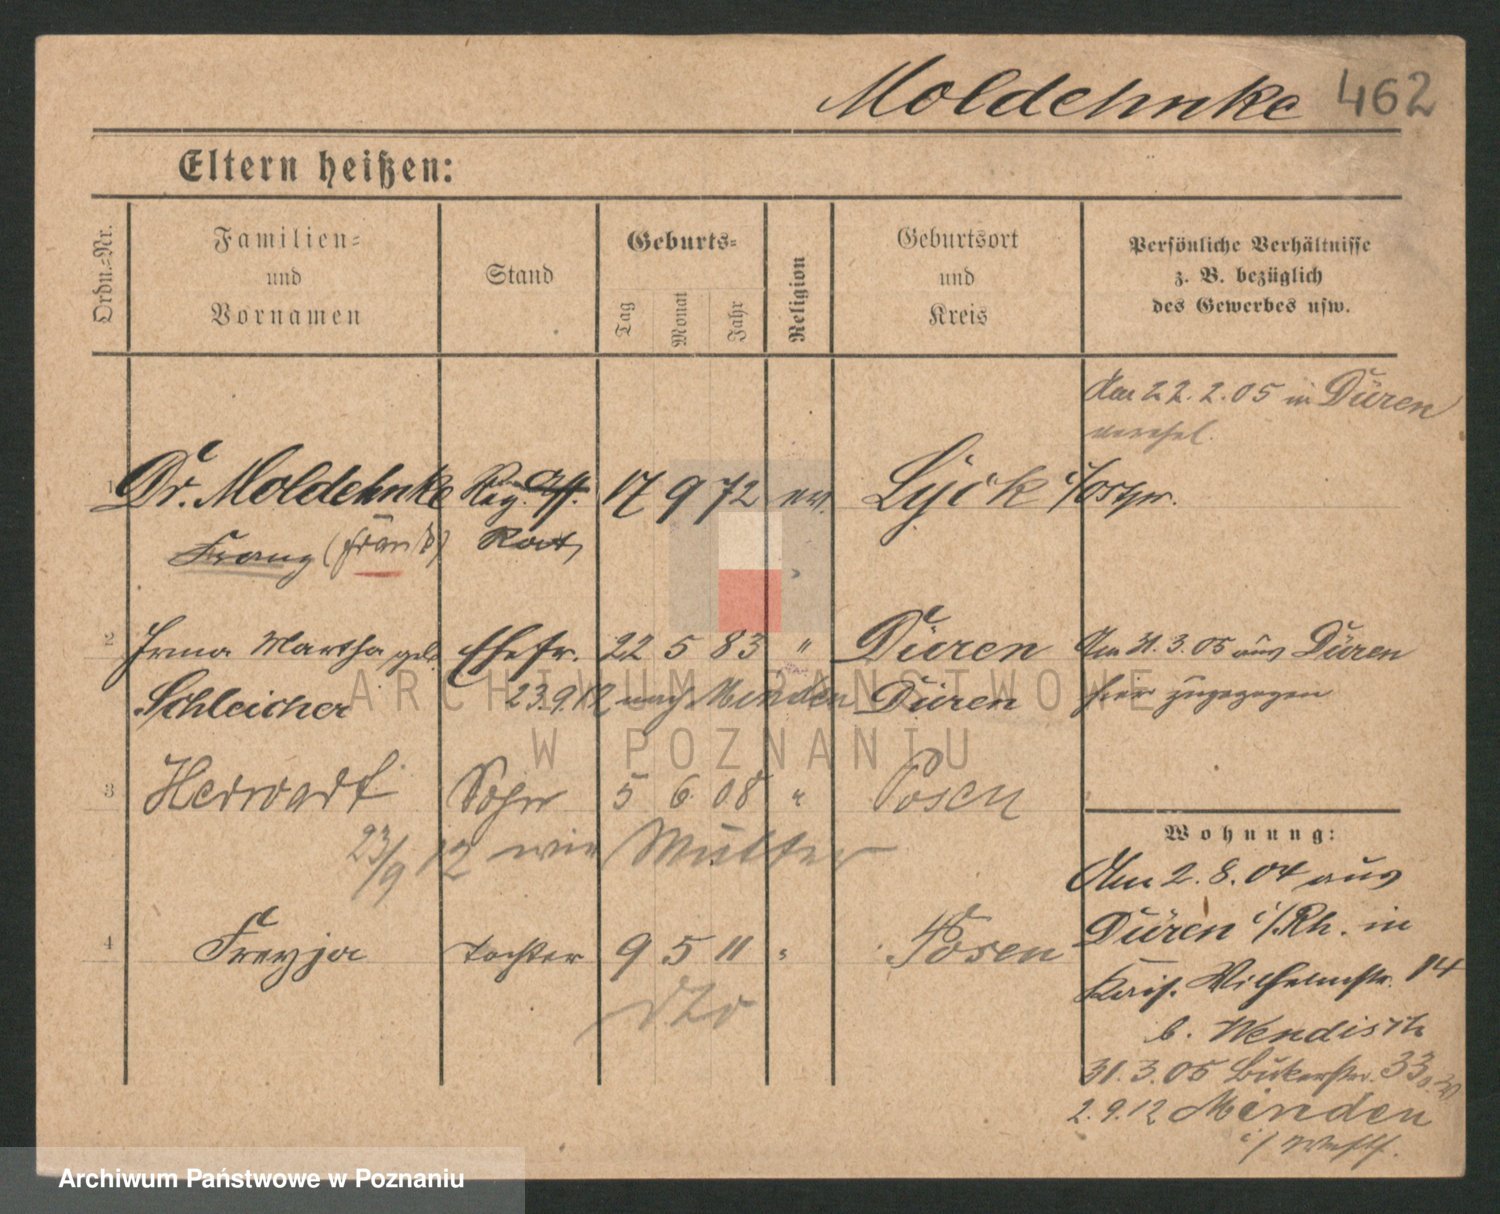 Moldehnke 462
Eltern heißen:
Ordn.-Nr.
Familien- und Vornamen
Stand
Geburts-
Tag
Monat
Jahr
Religion
Geburtsort und Kreis
Persönliche Verhältnisse z. B. bezüglich des Gewerbes usw.
Am 22.2.05 in Düren
verehel.
1 Dr. Moldehnke Reg. Ass. 17 9 72 ev. Lyck i/Ostpr.
Franz (Franz) Rat
2 Irma Martha geb. Ehefr. 22 5 83 " Düren Am 31.3.05 aus Düren
Schleicher 23.9.12 nach Minden Düren hier zugezogen
3 Herwarth Sohn 5 6 08 " Posen
23/9 12 wie Mutter
4 Freyja Tochter 9 5 11 " Posen
dto
Wohnung:
Am 2.8.04 aus
Düren i/Rh. in
Kais. Wilhelmstr. 14
b. Wendisch
31.3.05 Bukerstr. 33
2.9.12 Minden
i/Westf.
ARCHIWUM PAŃSTWOWE
W POZNANIU
Archiwum Państwowe w Poznaniu